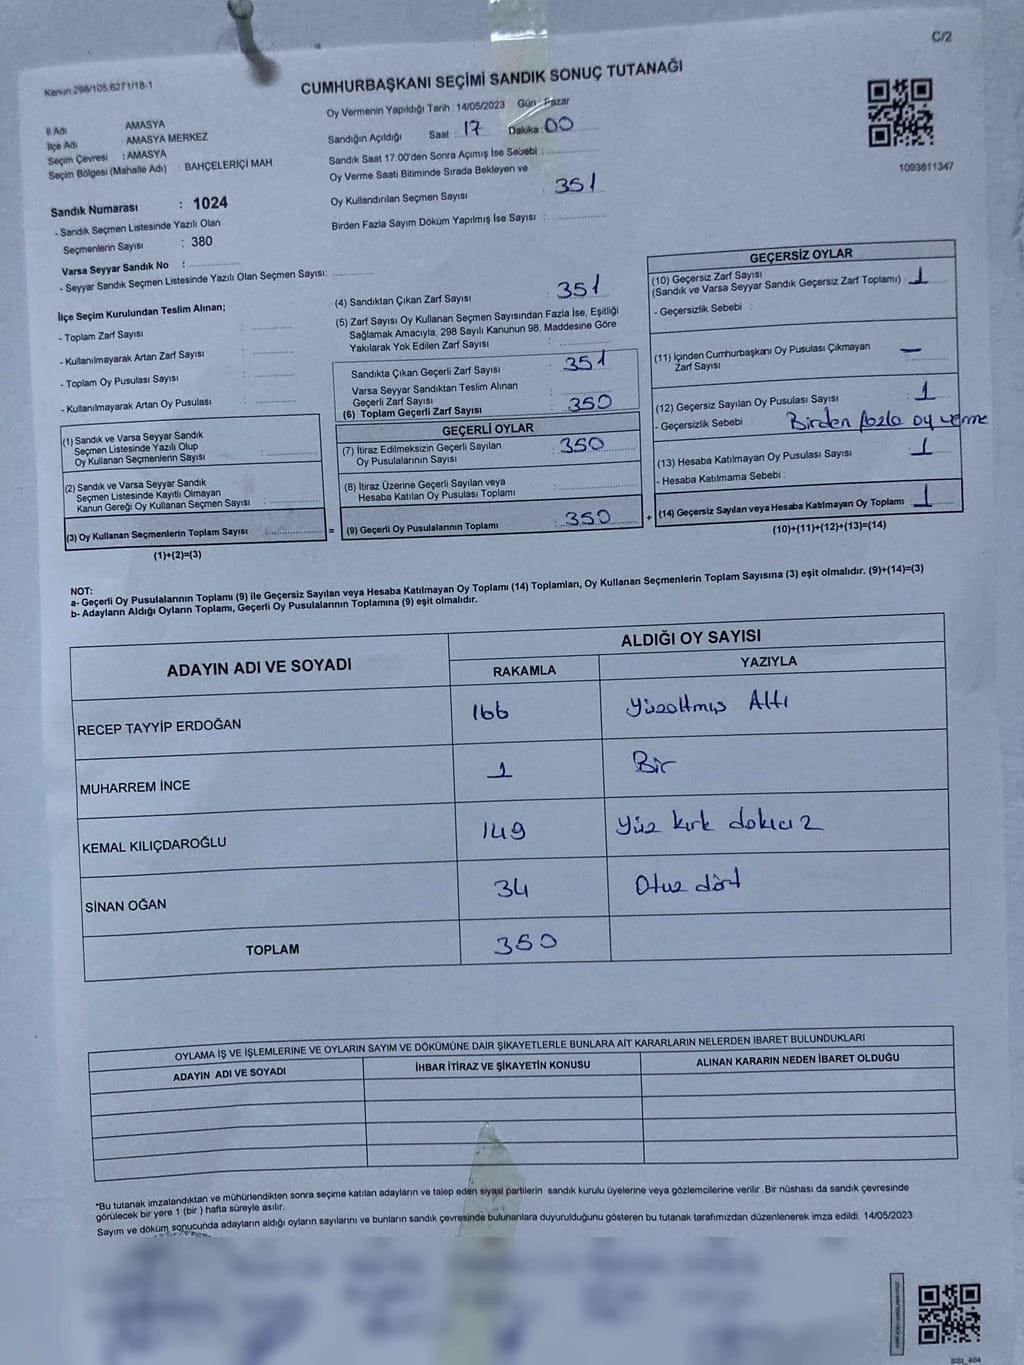 C/2
Kanun 298/105,6271/18-1
CUMHURBAŞKANI SEÇİMİ SANDIK SONUÇ TUTANAĞI
Oy Vermenin Yapıldığı Tarih : 14/05/2023 Gün : Pazar
İl Adı AMASYA
İlçe Adı AMASYA MERKEZ
Seçim Çevresi : AMASYA
Seçim Bölgesi (Mahalle Adı) : BAHÇELERİÇİ MAH
Sandığın Açıldığı Saat : 17 Dakika : 00
Sandık Saat 17.00'den Sonra Açımış İse Sebebi :
Oy Verme Saati Bitiminde Sırada Bekleyen ve
Oy Kullandırılan Seçmen Sayısı : 351
Birden Fazla Sayım Döküm Yapılmış İse Sayısı :
1093811347
Sandık Numarası : 1024
- Sandık Seçmen Listesinde Yazılı Olan
Seçmenlerin Sayısı : 380
Varsa Seyyar Sandık No :
- Seyyar Sandık Seçmen Listesinde Yazılı Olan Seçmen Sayısı:
İlçe Seçim Kurulundan Teslim Alınan;
- Toplam Zarf Sayısı :
- Kullanılmayarak Artan Zarf Sayısı :
- Toplam Oy Pusulası Sayısı :
- Kullanılmayarak Artan Oy Pusulası :
(1) Sandık ve Varsa Seyyar Sandık
Seçmen Listesinde Yazılı Olup
Oy Kullanan Seçmenlerin Sayısı :
(2) Sandık ve Varsa Seyyar Sandık
Seçmen Listesinde Kayıtlı Olmayan
Kanun Gereği Oy Kullanan Seçmen Sayısı :
(3) Oy Kullanan Seçmenlerin Toplam Sayısı :
(1)+(2)=(3)
(4) Sandıktan Çıkan Zarf Sayısı : 351
(5) Zarf Sayısı Oy Kullanan Seçmen Sayısından Fazla İse, Eşitliği
Sağlamak Amacıyla, 298 Sayılı Kanunun 98. Maddesine Göre
Yakılarak Yok Edilen Zarf Sayısı :
Sandıkta Çıkan Geçerli Zarf Sayısı : 351
Varsa Seyyar Sandıktan Teslim Alınan
Geçerli Zarf Sayısı :
(6) Toplam Geçerli Zarf Sayısı : 350
GEÇERLİ OYLAR
(7) İtiraz Edilmeksizin Geçerli Sayılan
Oy Pusulalarının Sayısı : 350
(8) İtiraz Üzerine Geçerli Sayılan veya
Hesaba Katılan Oy Pusulası Toplamı :
= (9) Geçerli Oy Pusulalarının Toplamı : 350
GEÇERSİZ OYLAR
(10) Geçersiz Zarf Sayısı
(Sandık ve Varsa Seyyar Sandık Geçersiz Zarf Toplamı) : 1
- Geçersizlik Sebebi :
(11) İçinden Cumhurbaşkanı Oy Pusulası Çıkmayan
Zarf Sayısı : —
(12) Geçersiz Sayılan Oy Pusulası Sayısı : 1
- Geçersizlik Sebebi : Birden fazla oy verme
(13) Hesaba Katılmayan Oy Pusulası Sayısı : 1
- Hesaba Katılmama Sebebi :
+ (14) Geçersiz Sayılan veya Hesaba Katılmayan Oy Toplamı : 1
(10)+(11)+(12)+(13)=(14)
NOT:
a- Geçerli Oy Pusulalarının Toplamı (9) ile Geçersiz Sayılan veya Hesaba Katılmayan Oy Toplamı (14) Toplamları, Oy Kullanan Seçmenlerin Toplam Sayısına (3) eşit olmalıdır. (9)+(14)=(3)
b- Adayların Aldığı Oyların Toplamı, Geçerli Oy Pusulalarının Toplamına (9) eşit olmalıdır.
ADAYIN ADI VE SOYADI ALDIĞI OY SAYISI
RAKAMLA YAZIYLA
RECEP TAYYİP ERDOĞAN 166 Yüzaltmış Altı
MUHARREM İNCE 1 Bir
KEMAL KILIÇDAROĞLU 149 Yüz kırk dokuz
SİNAN OĞAN 34 Otuz dört
TOPLAM 350
OYLAMA İŞ VE İŞLEMLERİNE VE OYLARIN SAYIM VE DÖKÜMÜNE DAİR ŞİKAYETLERLE BUNLARA AİT KARARLARIN NELERDEN İBARET BULUNDUKLARI
ADAYIN ADI VE SOYADI İHBAR İTİRAZ VE ŞİKAYETİN KONUSU ALINAN KARARIN NEDEN İBARET OLDUĞU
"Bu tutanak imzalandıktan ve mühürlendikten sonra seçime katılan adayların ve talep eden siyasi partilerin sandık kurulu üyelerine veya gözlemcilerine verilir .Bir nüshası da sandık çevresinde
görülecek bir yere 1 (bir ) hafta süreyle asılır.
Sayım ve döküm sonucunda adayların aldığı oyların sayılarını ve bunların sandık çevresinde bulunanlara duyurulduğunu gösteren bu tutanak tarafımızdan düzenlenerek imza edildi. 14/05/2023
SSI_404